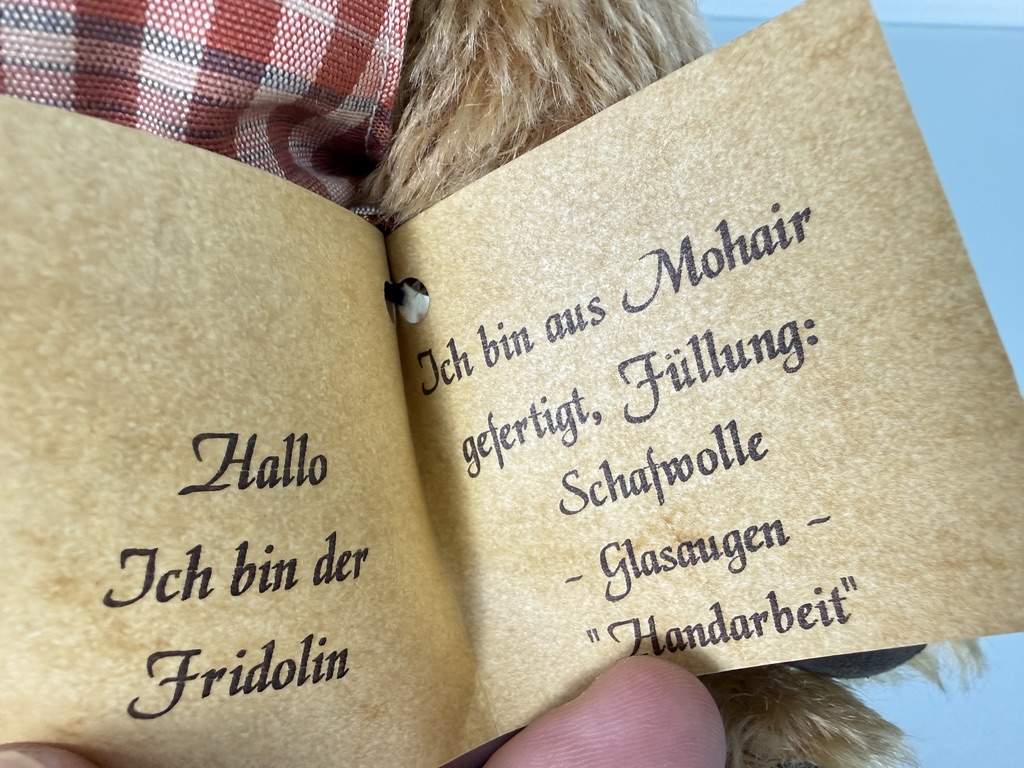 Hallo
Ich bin der
Fridolin
Ich bin aus Mohair
gefertigt, Füllung:
Schafwolle
~ Glasaugen ~
"Handarbeit"